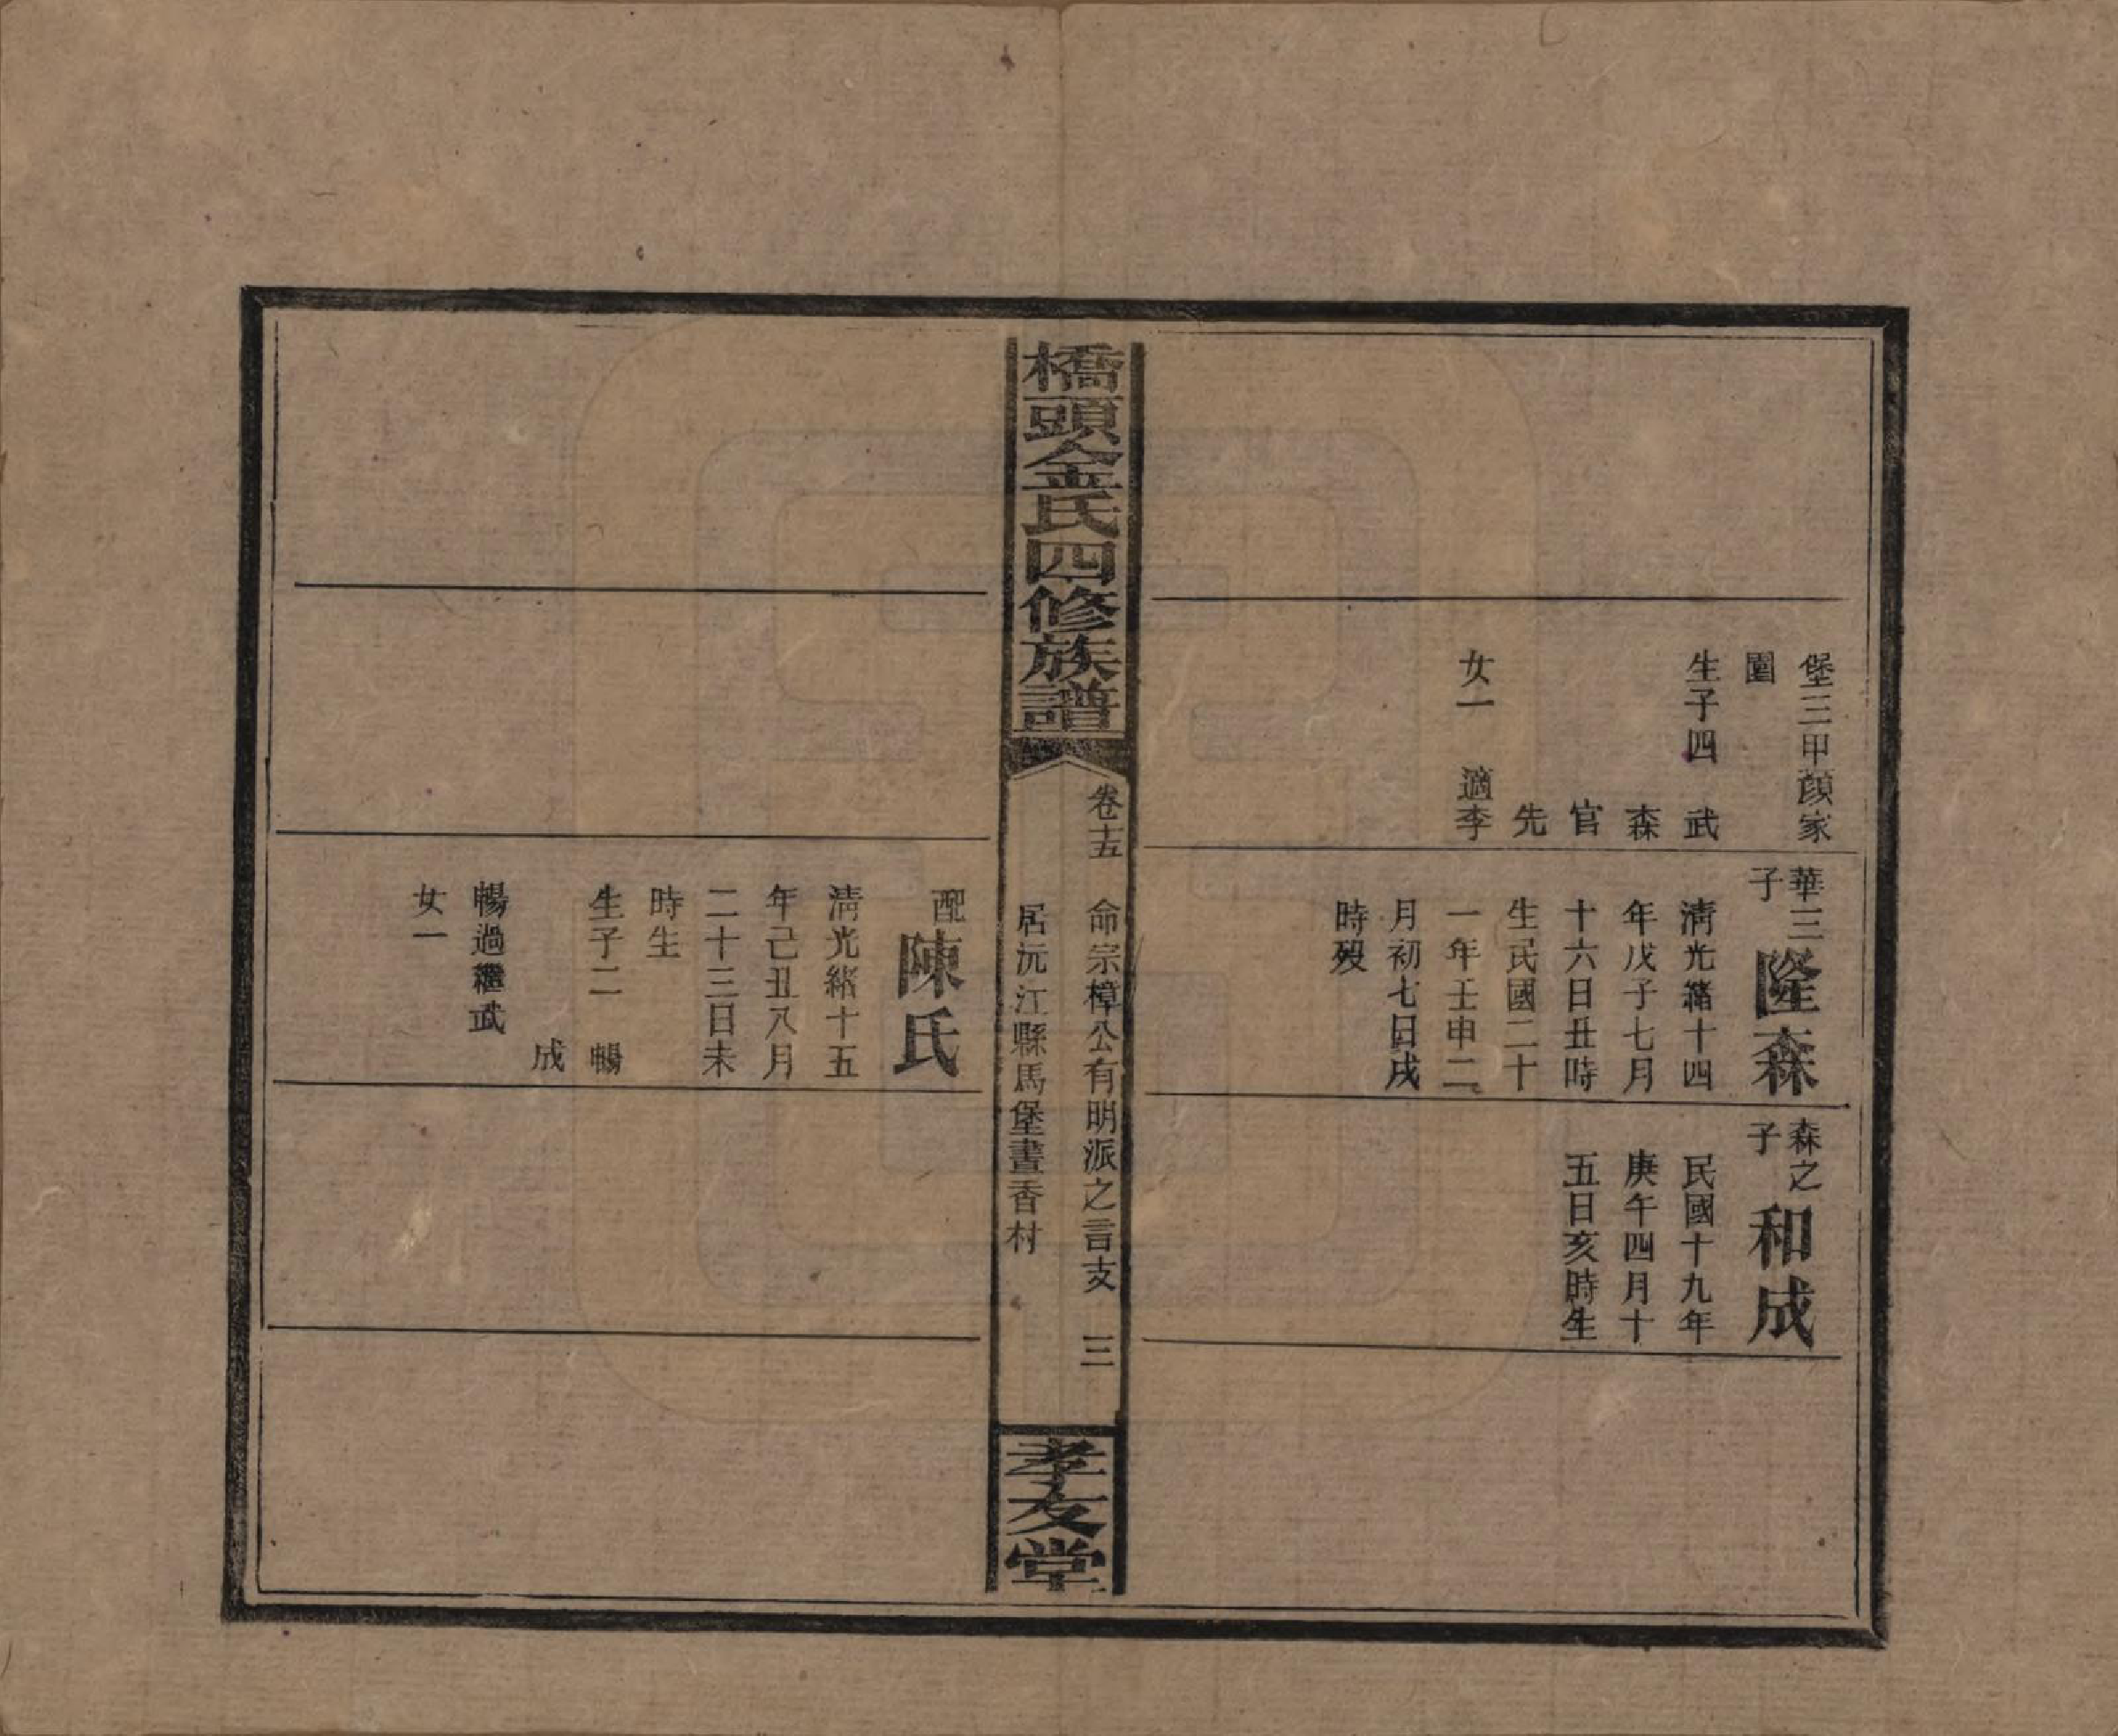 堡三甲顔家
園
生子四　武
森
官
先
女一　適李
華三子
隆森
淸光緒十四
年戊子七月
十六日丑時
生民國二十
一年壬申二
月初七日戌
時殁
森之子
和成
民國十九年
庚午四月十
五日亥時生
橋頭金氏四修族譜
卷十五　命宗樟公有明派之言支　三
居沅江縣馬堡書香村
孝友堂
配
陳氏
淸光緒十五
年己丑八月
二十三日未
時生
生子二　暢
成
暢過繼武
女一